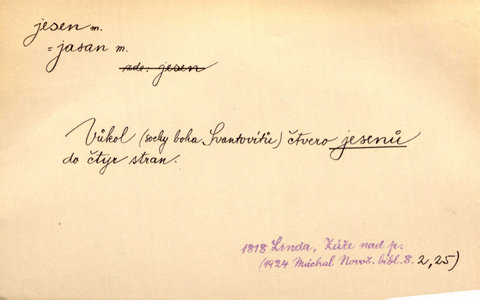 jesen m.
= jasan m.
zdr. jesen
Vůkol (sochy boha Svantovítů) čtvero jesenů
do čtyr stran.
1818 Linda, Záře nad p.
(1924 Máchal Novoč. bibl. 8. 2, 25)